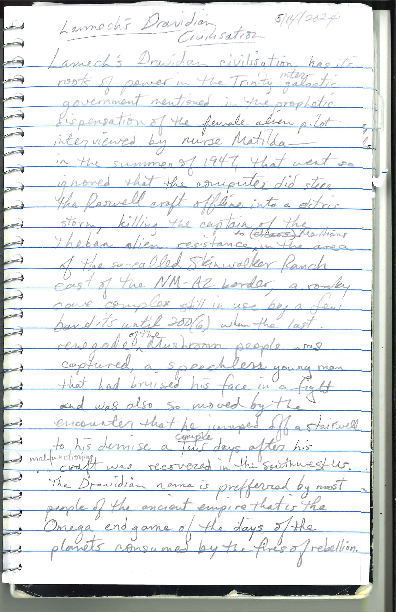 Lamech's Dravidian 5/14/2024
Civilisation
Lamech's Dravidan civilisation has its
roots of power in the Trinty inter galactic
government mentioned in the prophetic
dispensation of the female alien pilot
interviewed by nurse Matilda
in the summer of 1947, that went so
ignored that the computer did steer
the Roswell craft offline into a
storm, killing the captain of the
Theban alien resistance to Martians in the area
of the so-called Skinwalker Ranch
east of the NM-AZ border, a
cave complex still in use by a few
bandits until when the last
renegade of the Mushroom people was
captured, a speechless young man
that had bruised his face in a fight
and was also so moved by the
encounter that he jumped off a stairwell
to his demise a couple days after his
malfunctioning craft was recovered in the Southwest US.
The Dravidian name is prefferred by most
people of the ancient empire that is the
Omega end game of the days of the
planets consumed by the fires of rebellion.